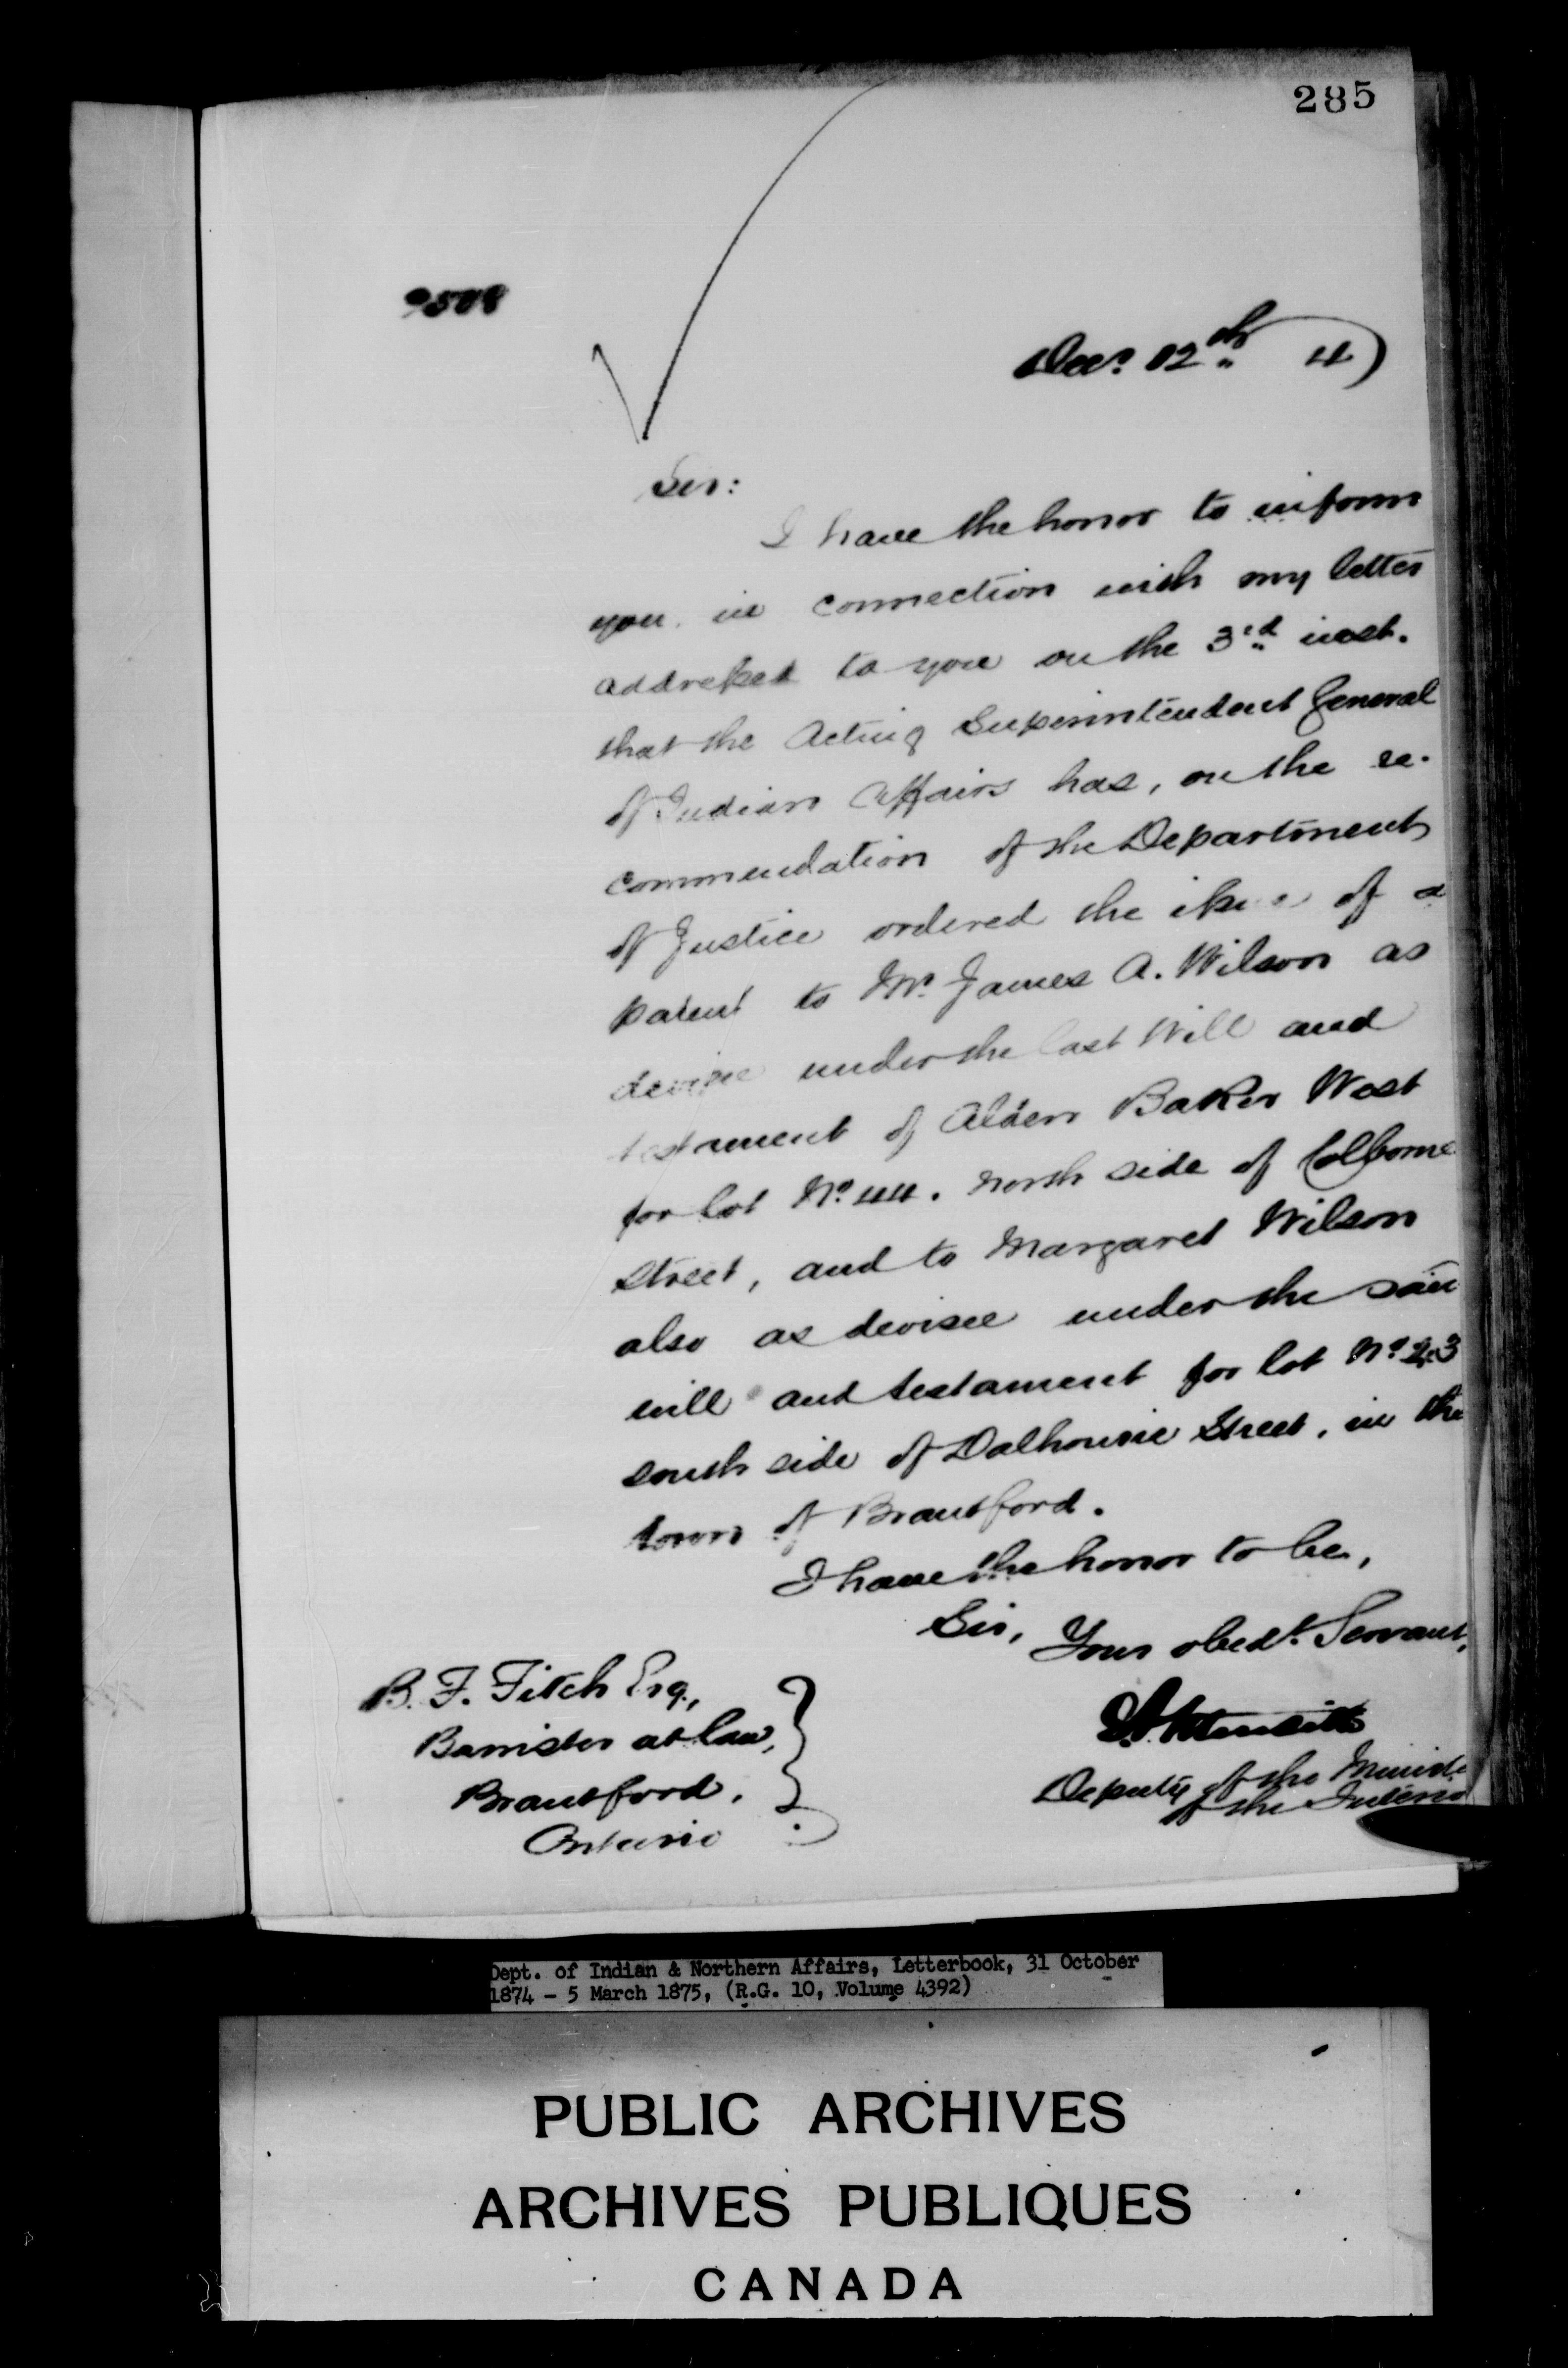 285
9508
Decr. 12th 4)
Sir:
I have the honor to inform
you in connection with my letter
addressed to you on the 3rd inst.
that the Acting Superintendent General
of Indian Affairs has, on the re-
commendation of the Department
of Justice ordered the issue of a
patent to Mr. James A. Wilson as
devisee under the last Will and
testament of Alden Baker West
for lot No. north side of Colborne
Street, and to Margaret Wilson
also as devisee under the said
will and testament for lot No. 23
south side of Dalhousie Street, in the
town of Brantford.
I have the honor to be,
Sir, Your obedt. Servant,
B. F. Fitch Esq.,
Barrister at law,
Brantford,
Ontario
Deputy of the Ministe
of the Interio
Dept. of Indian & Northern Affairs, Letterbook, 31 October
1874 - 5 March 1875, (R.G. 10, Volume 4392)
PUBLIC ARCHIVES
ARCHIVES PUBLIQUES
CANADA